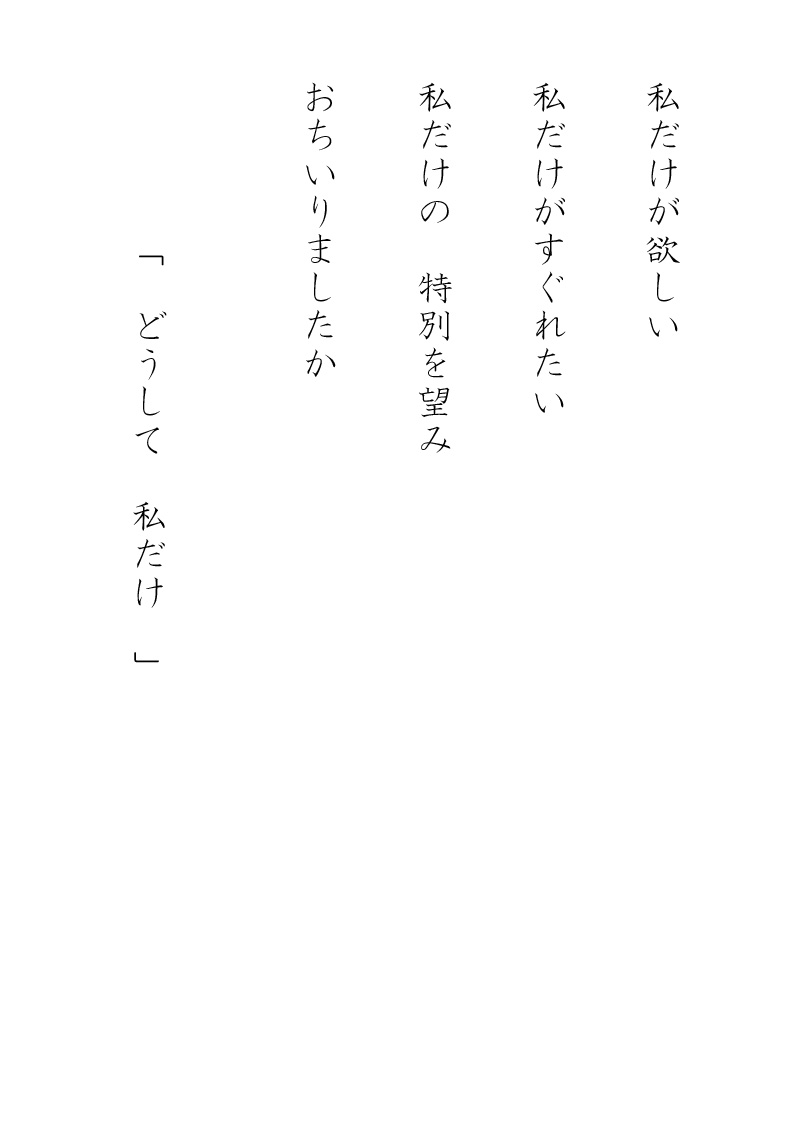 私だけが欲しい
私だけがすぐれたい
私だけの　特別を望み
おちいりましたか
「　どうして　私だけ　」